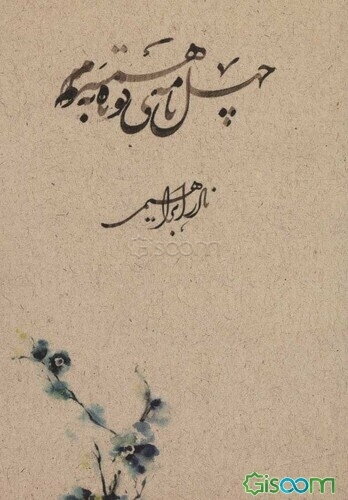 چهل نامه‌ی کوتاه به همسرم
نادر ابراهیمی
Gisoom
Gisoom